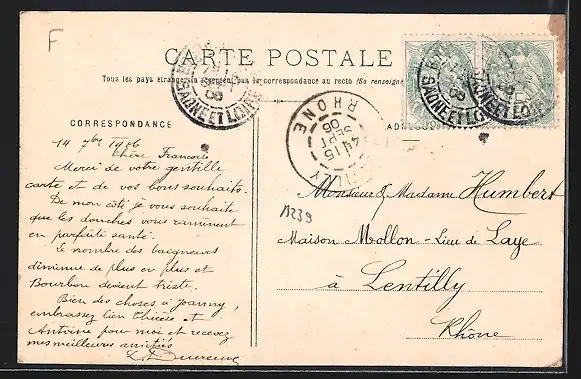 F
CARTE POSTALE
Tous les pays étrangers n'acceptent pas la correspondance au recto (Se renseigner
CORRESPONDANCE
14 7bre 1906
Chère Françoise
Merci de votre gentille
carte et de vos bons souhaits.
De mon côté je vous souhaite
que les douches vous ramènent
en parfaite santé.
Le nombre des baigneurs
diminue de plus en plus et
Bourbon devient triste.
Bien des choses à Joanny,
embrassez bien Thérèse et
Antoine pour moi et recevez
mes meilleures amitiés
SAONE ET LOIRE
SAONE ET LOIRE
SAONE ET LOIRE
RHONE
15
SEPT
06
Monsieur & Madame Humbert
Maison Mollon - Lieu de Laye
à Lentilly
Rhône